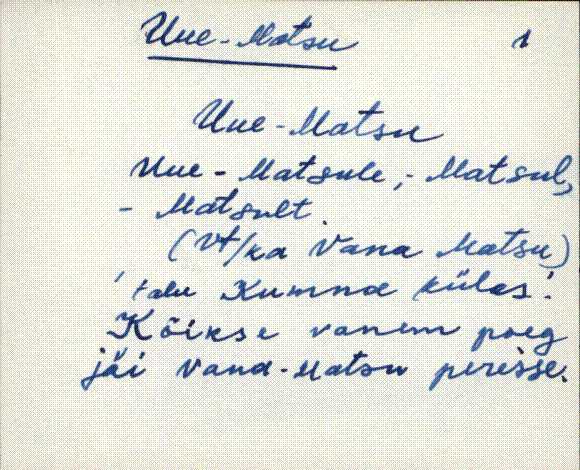 Uue-Matsu 1
Uue-Matsu
Uue-Matsule, -Matsul,
-Matsult
(vt/ka Vana Matsu)
'talu Kumna külas'.
Kõikse vanem poeg
jäi Vana-Matsu peresse.